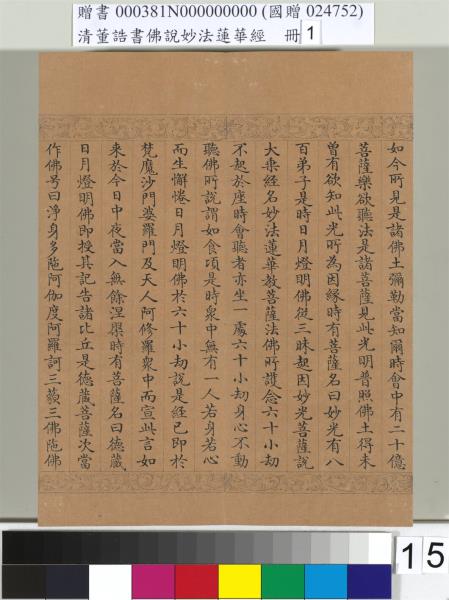 贈書 000381N000000000 (國贈 024752)
清董誥書佛說妙法蓮華經 冊 1
如今所見是諸佛土彌勒當知爾時會中有二十億
菩薩樂欲聽法是諸菩薩見此光明普照佛土得未
曾有欲知此光所為因緣時有菩薩名曰妙光有八
百弟子是時日月燈明佛從三昧起因妙光菩薩說
大乗經名妙法蓮華教菩薩法佛所護念六十小劫
不起於座時會聽者亦坐一處六十小劫身心不動
聽佛所說謂如食頃是時衆中無有一人若身若心
而生懈惓日月燈明佛於六十小劫說是經已即於
梵魔沙門婆羅門及天人阿修羅衆中而宣此言如
来於今日中夜當入無餘涅槃時有菩薩名曰德藏
日月燈明佛即授其記告諸比丘是德藏菩薩次當
作佛号曰淨身多陁阿伽度阿羅訶三藐三佛陁佛
15